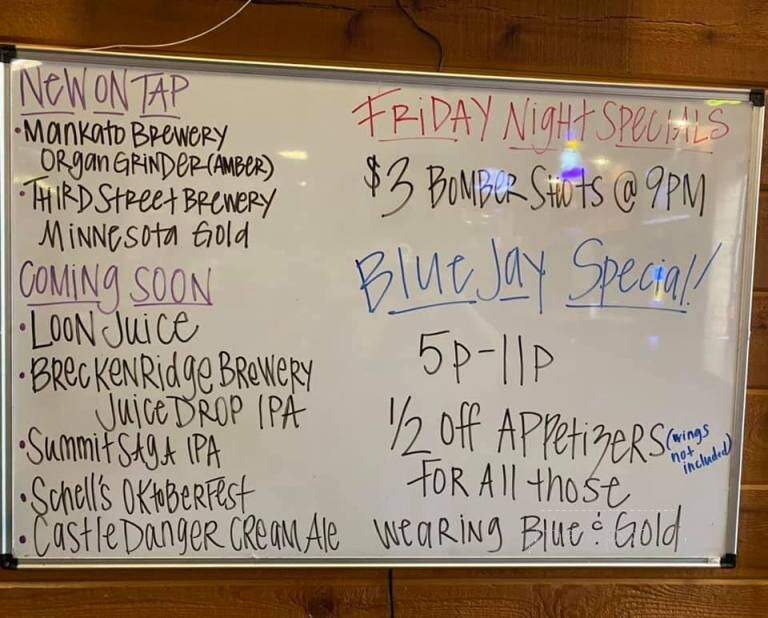 NEW ON TAP
• MANKATO BREWERY
ORGAN GRINDER (AMBER)
• THIRD STREET BREWERY
MINNESOTA GOLD
COMING SOON
• LOON JUICE
• BRECKENRIDGE BREWERY
JUICE DROP IPA
• SUMMIT SAGA IPA
• SCHELL'S OKTOBERFEST
• CASTLE DANGER CREAM ALE
FRIDAY NIGHT SPECIALS
$3 BOMBER SHOTS @ 9PM
Blue Jay Special!
5p-11p
1/2 off APPetizers (wings
not
included)
FOR All those
WEARING Blue & Gold